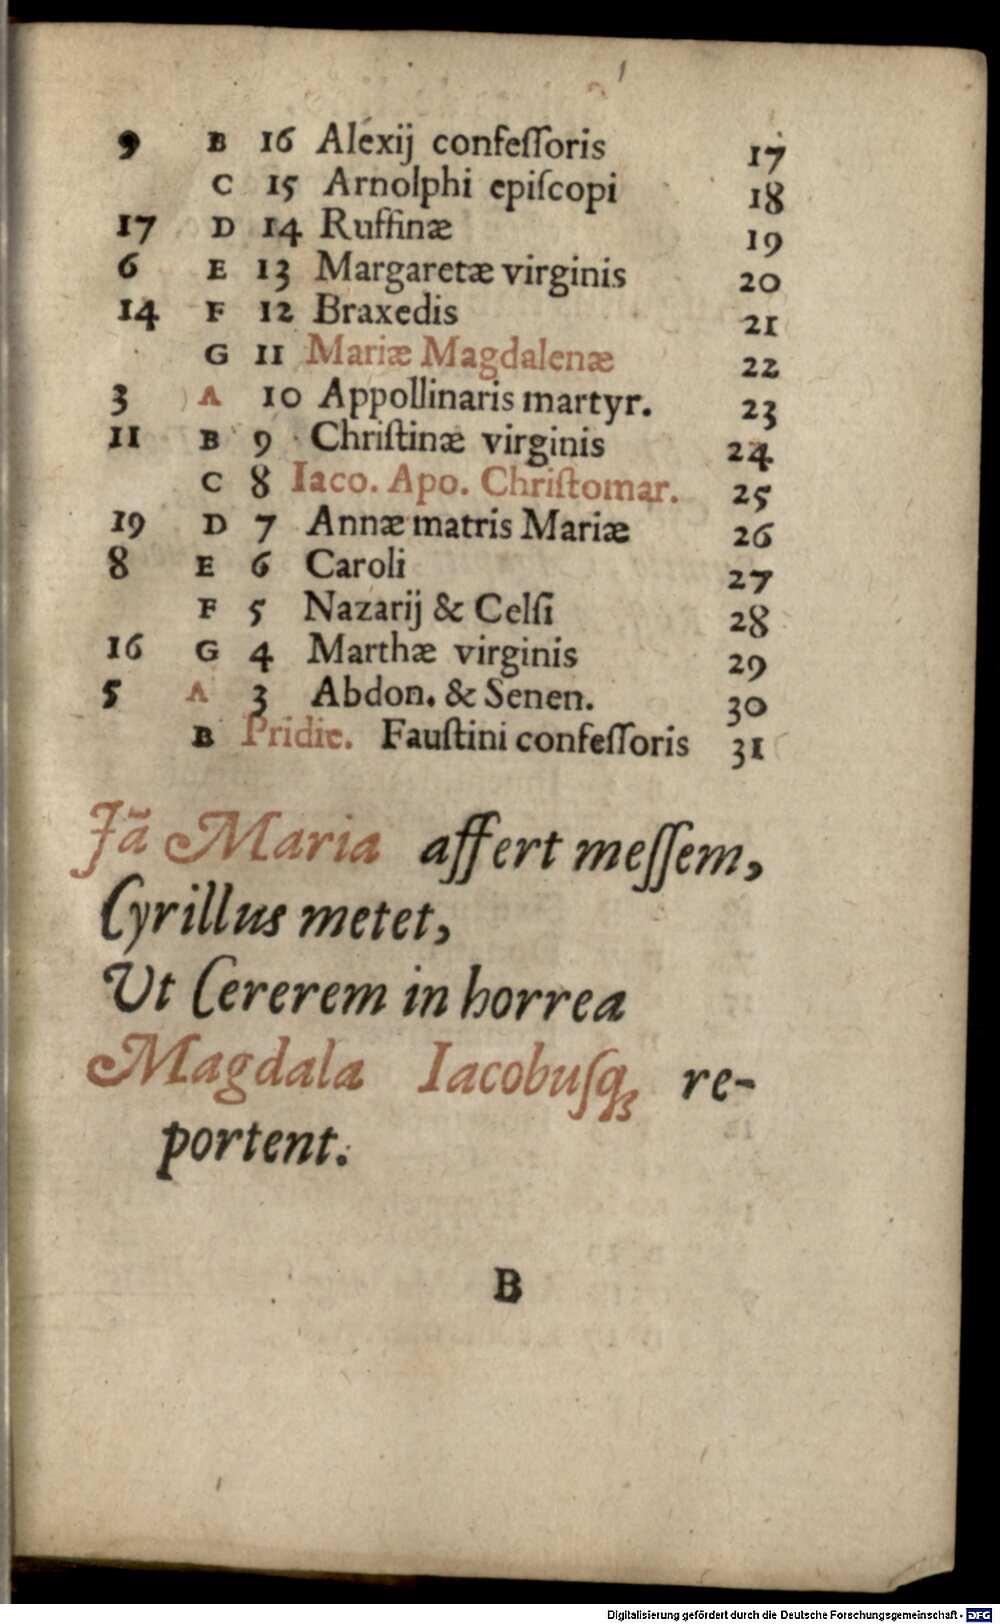 9 B 16 Alexij confeſſoris 17
C 15 Arnolphi epiſcopi 18
17 D 14 Ruffinæ 19
6 E 13 Margaretæ virginis 20
14 F 12 Braxedis 21
G 11 Mariæ Magdalenæ 22
3 A 10 Appollinaris martyr. 23
11 B 9 Chriſtinæ virginis 24
C 8 Iaco. Apo. Chriſtomar. 25
19 D 7 Annæ matris Mariæ 26
8 E 6 Caroli 27
F 5 Nazarij & Celſi 28
16 G 4 Marthæ virginis 29
5 A 3 Abdon. & Senen. 30
B Pridie. Fauſtini confeſſoris 31
Jã Maria affert meſſem,
Cyrillus metet,
Ut Cererem in horrea
Magdala Iacobuſq; re-
portent.
B
Digitalisierung gefördert durch die Deutsche Forschungsgemeinschaft - DFG